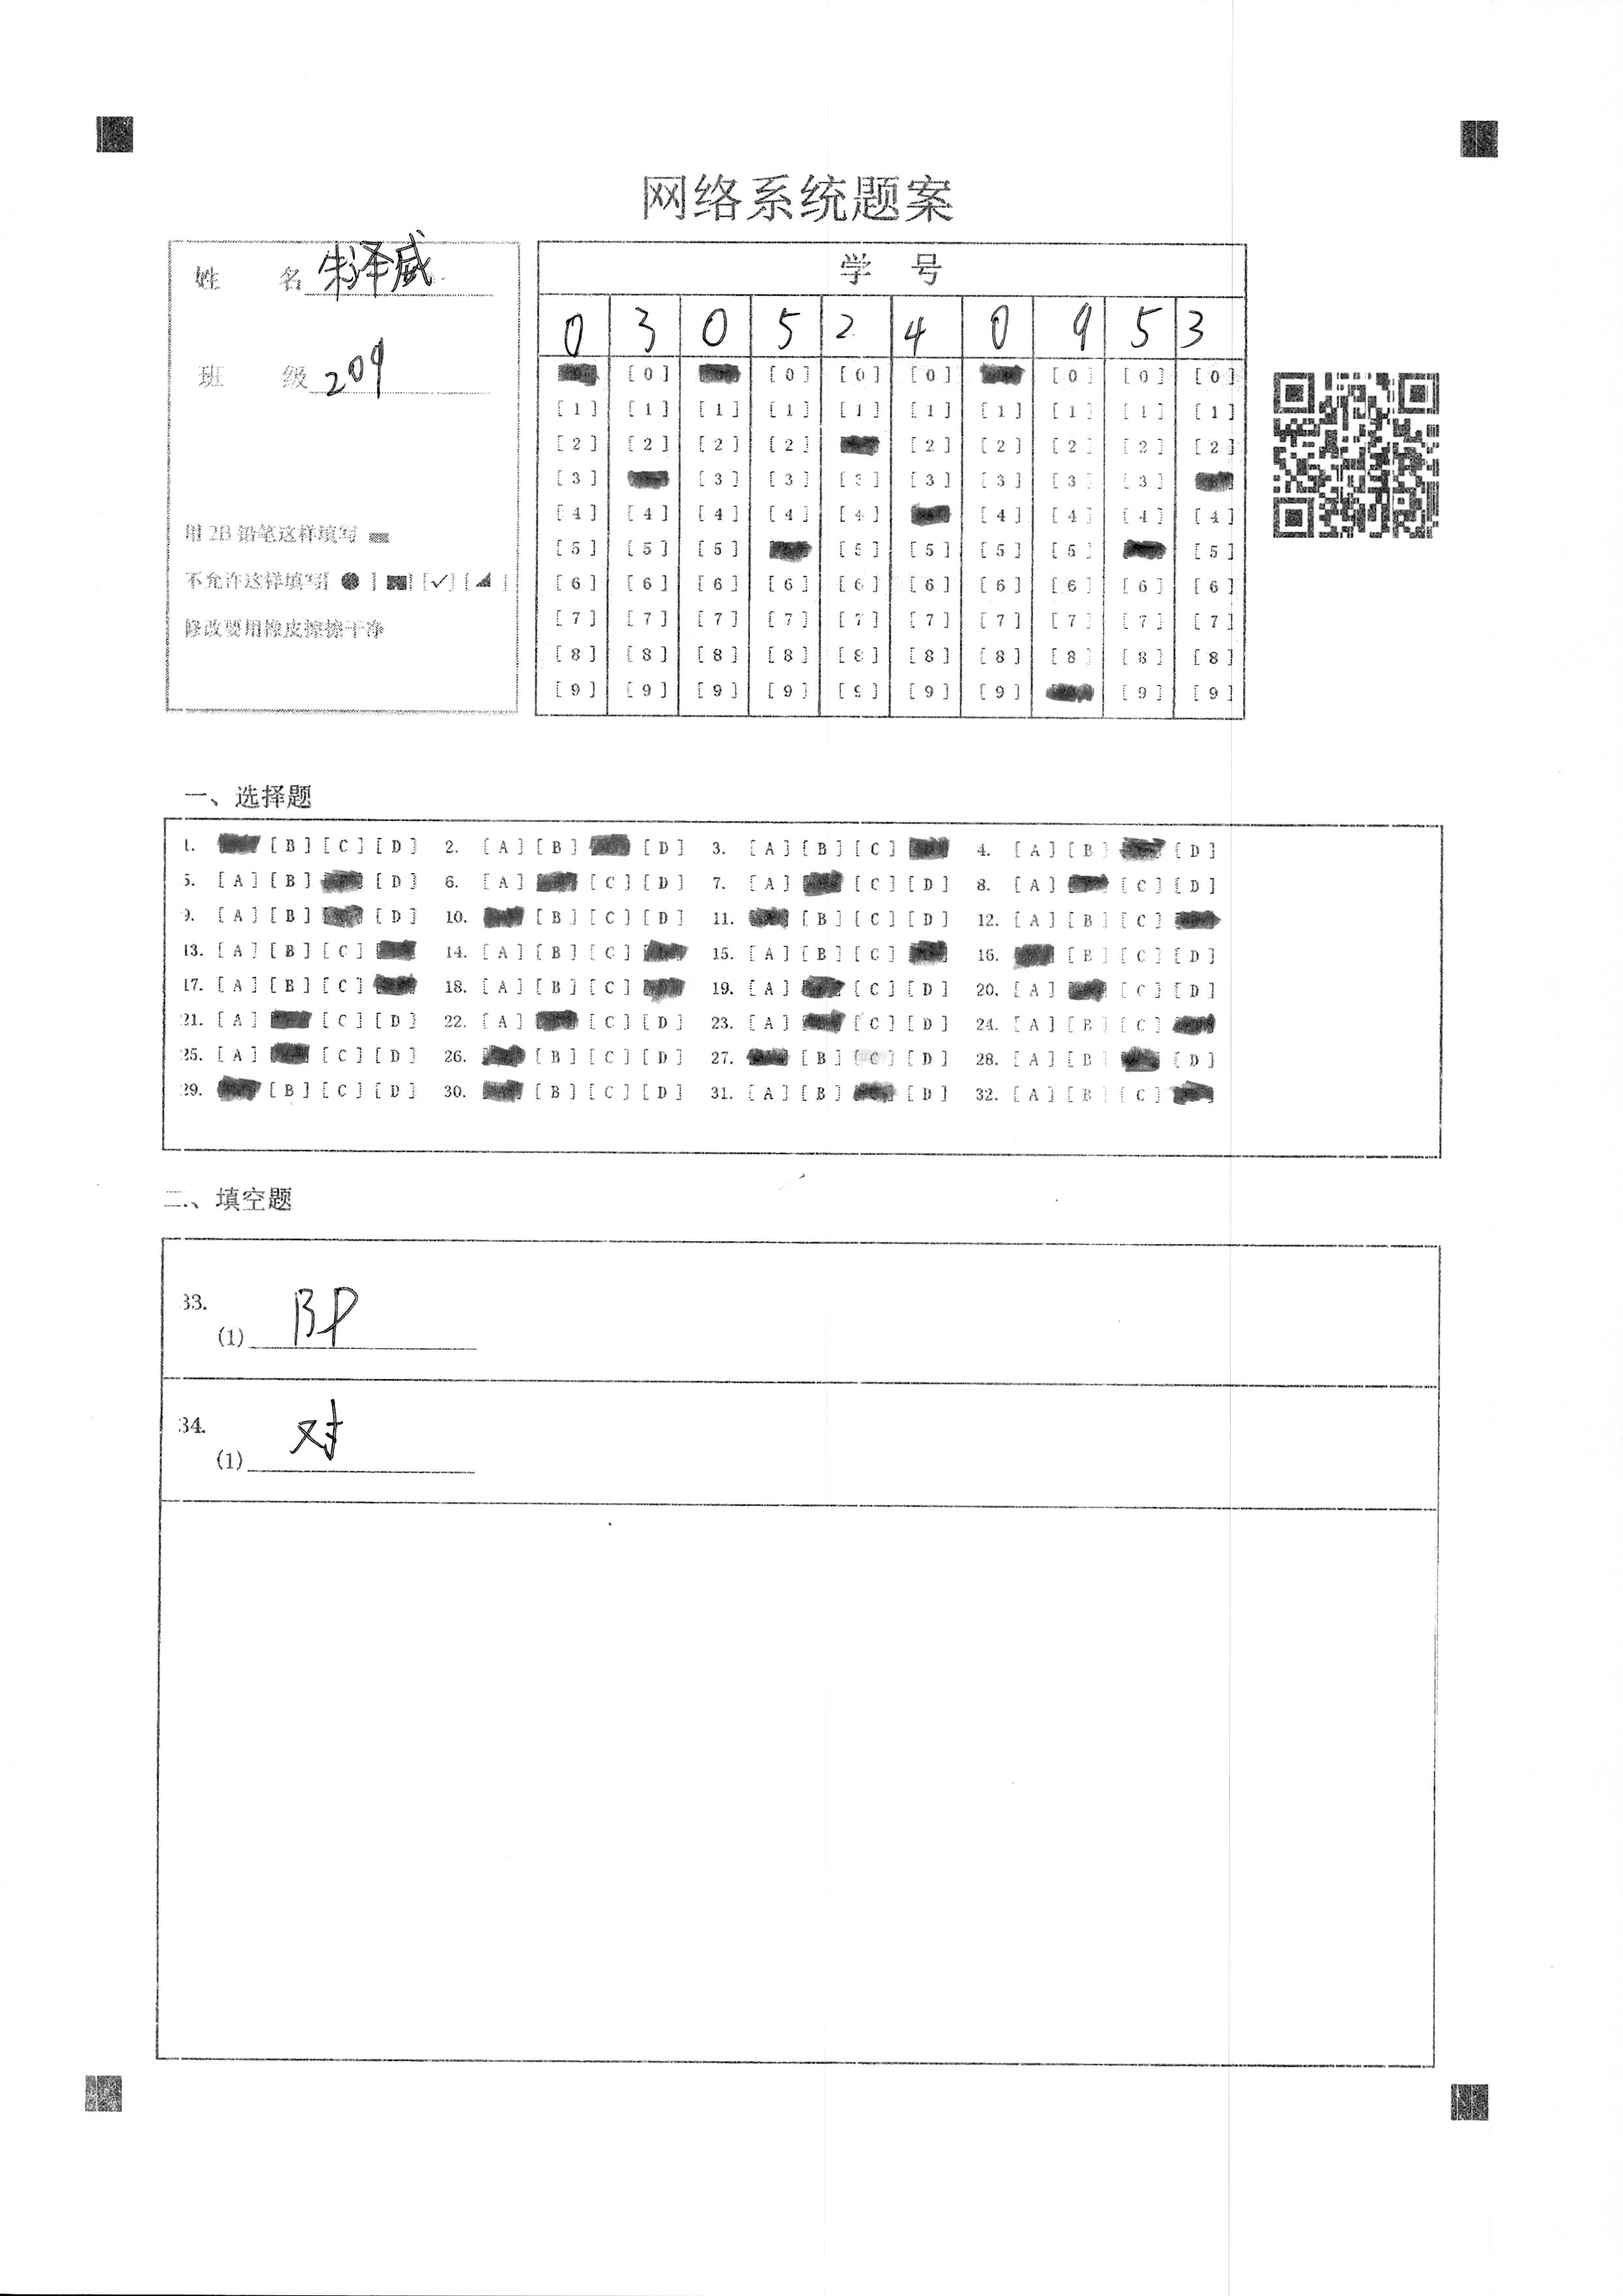 网络系统题案
姓 名 朱泽威
班 级 209
用 2B 铅笔这样填写
不允许这样填写[ ● ] [ ■ ] [✓] [◢ ]
修改要用橡皮擦擦干净
学 号
0 3 0 5 2 4 0 9 5 3
[0] [0] [0] [0] [0] [0] [0]
[1] [1] [1] [1] [1] [1] [1] [1] [1] [1]
[2] [2] [2] [2] [2] [2] [2] [2] [2]
[3] [3] [3] [3] [3] [3] [3] [3]
[4] [4] [4] [4] [4] [4] [4] [4] [4]
[5] [5] [5] [5] [5] [5] [5] [5]
[6] [6] [6] [6] [6] [6] [6] [6] [6] [6]
[7] [7] [7] [7] [7] [7] [7] [7] [7] [7]
[8] [8] [8] [8] [8] [8] [8] [8] [8] [8]
[9] [9] [9] [9] [9] [9] [9] [9] [9]
一、选择题
1. [B] [C] [D] 2. [A] [B] [D] 3. [A] [B] [C] 4. [A] [B] [D]
5. [A] [B] [D] 6. [A] [C] [D] 7. [A] [C] [D] 8. [A] [C] [D]
9. [A] [B] [D] 10. [B] [C] [D] 11. [B] [C] [D] 12. [A] [B] [C]
13. [A] [B] [C] 14. [A] [B] [C] 15. [A] [B] [C] 16. [B] [C] [D]
17. [A] [B] [C] 18. [A] [B] [C] 19. [A] [C] [D] 20. [A] [C] [D]
21. [A] [C] [D] 22. [A] [C] [D] 23. [A] [C] [D] 24. [A] [B] [C]
25. [A] [C] [D] 26. [B] [C] [D] 27. [B] [C] [D] 28. [A] [B] [D]
29. [B] [C] [D] 30. [B] [C] [D] 31. [A] [B] [D] 32. [A] [B] [C]
二、填空题
33.
(1) BP
34.
(1) 对